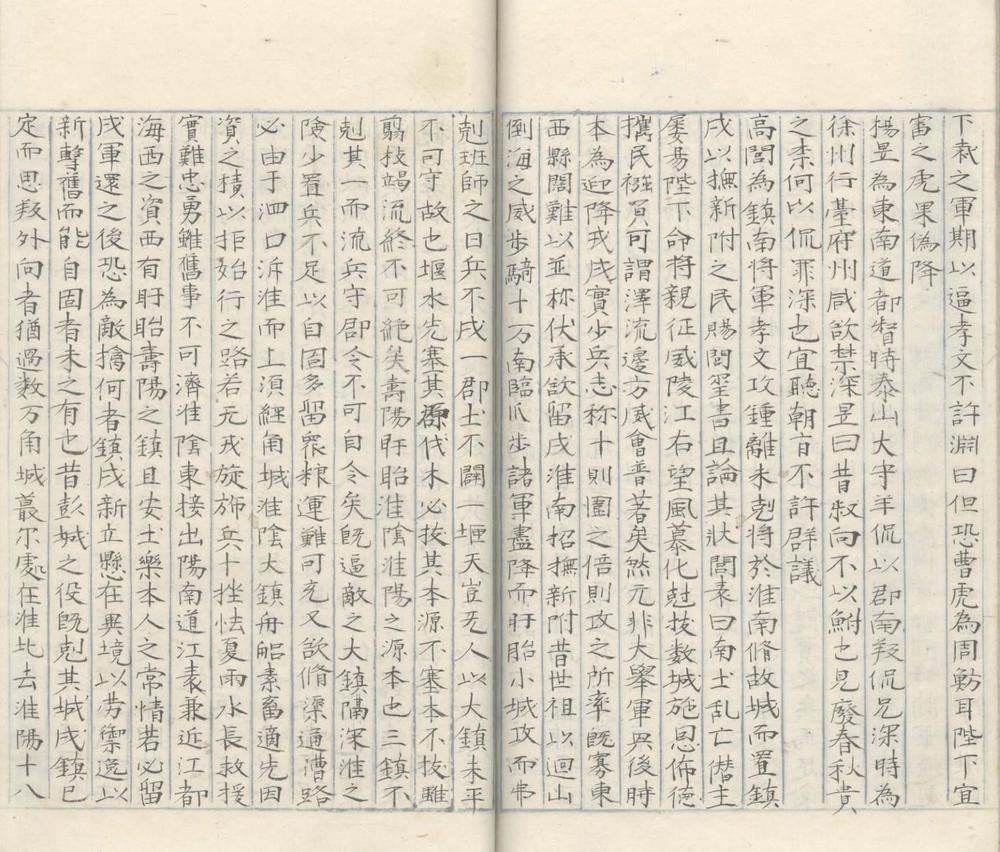 下裁之軍期以逼孝文不許淵曰但恐曹虎為周魴耳陛下宜
審之虎果偽降
揚昱為東南道都督時泰山大守羊侃以郡南叛侃兄深時為
徐州行臺府州咸欲禁深昱曰昔叔向不以鮒也見廢春秋貴
之柰何以侃罪深也宜聽朝旨不許群議
高閭為鎮南將軍孝文攻鍾離未剋將於淮南脩故城而置鎮
戍以撫新附之民賜閭璽書且論其狀閭表曰南土乱亡僭主
屢易陛下命将親征威陵江右望風慕化尅拔数城施恩佈德
攜民襁負可謂澤流邊方威會普著矣然元非大舉軍興後時
本為迎降戎戍實少兵志称十則圍之倍則攻之所率既寡東
西縣闊難以並称伏承欲留戍淮南招撫新附昔世祖以迴山
倒海之威步騎十万南臨瓜步諸軍盡降而盱眙小城攻而弗
剋班師之日兵不戍一郡土不闢一堙天豈无人以大鎮未平
不可守故也堰水先塞其源伐木必拔其本源不塞本不拔雖
翦枝竭流終不可絶矣壽陽盱眙淮陰淮陽之源本也三鎮不
剋其一而流兵守郡令不可自令矣既逼敵之大鎮隔深淮之
險少置兵不足以自固多留衆粮運難可充又欲脩渠通漕路
必由于泗口泝淮而上湏經角城淮陰大鎮舟舩素畜適先因
資之積以拒始行之路若无戎旋斾兵十挫怯夏雨水長救援
實難忠勇雖舊事不可濟淮陰東接出陽南道江表兼近江都
海西之資西有盱眙壽陽之鎮且安土樂本人之常情若必留
戍軍還之後恐為敵擒何者鎮戍新立懸在異境以劳禦逸以
新擊舊而能自固者未之有也昔彭城之役既剋其城戍鎮已
定而思叛外向者猶過数万角城蕞尔處在淮北去淮陽十八